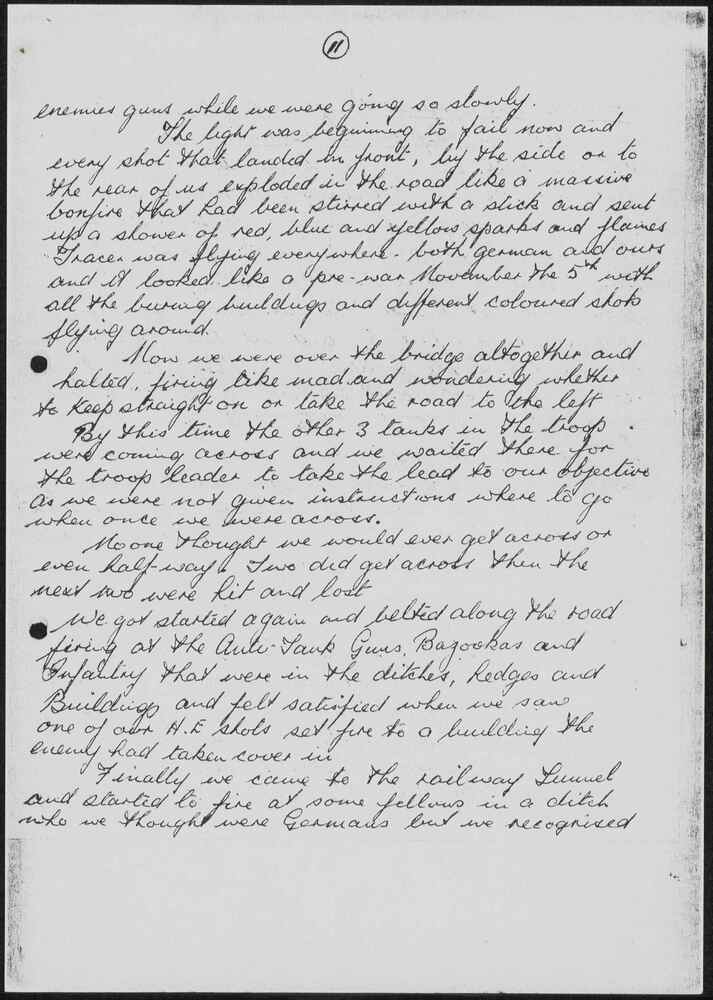 11
enemies guns while we were going so slowly.
The light was beginning to fail now and
every shot that landed in front, by the side or to
the rear of us exploded in the road like a massive
bonfire that had been stirred with a stick and sent
up a shower of red, blue and yellow sparks and flames
Tracer was flying everywhere - both german and ours
and it looked like a pre-war November the 5th with
all the burning buildings and different coloured shots
flying around.
Now we were over the bridge altogether and
halted, firing like mad and wondering whether
to keep straight on or take the road to the left
By this time the other 3 tanks in the troop
were coming across and we waited there for
the troop leader to take the lead to our objective
as we were not given instructions where to go
when once we were across.
No one thought we would ever get across or
even half-way. Two did get across then the
next two were hit and lost
We got started again and belted along the road
firing at the Anti-Tank Guns, Bazookas and
Infantry that were in the ditches, hedges and
Buildings and felt satisfied when we saw
one of our H.E shots set fire to a building the
enemy had taken cover in
Finally we came to the railway Tunnel
and started to fire at some fellows in a ditch
who we thought were Germans but we recognised